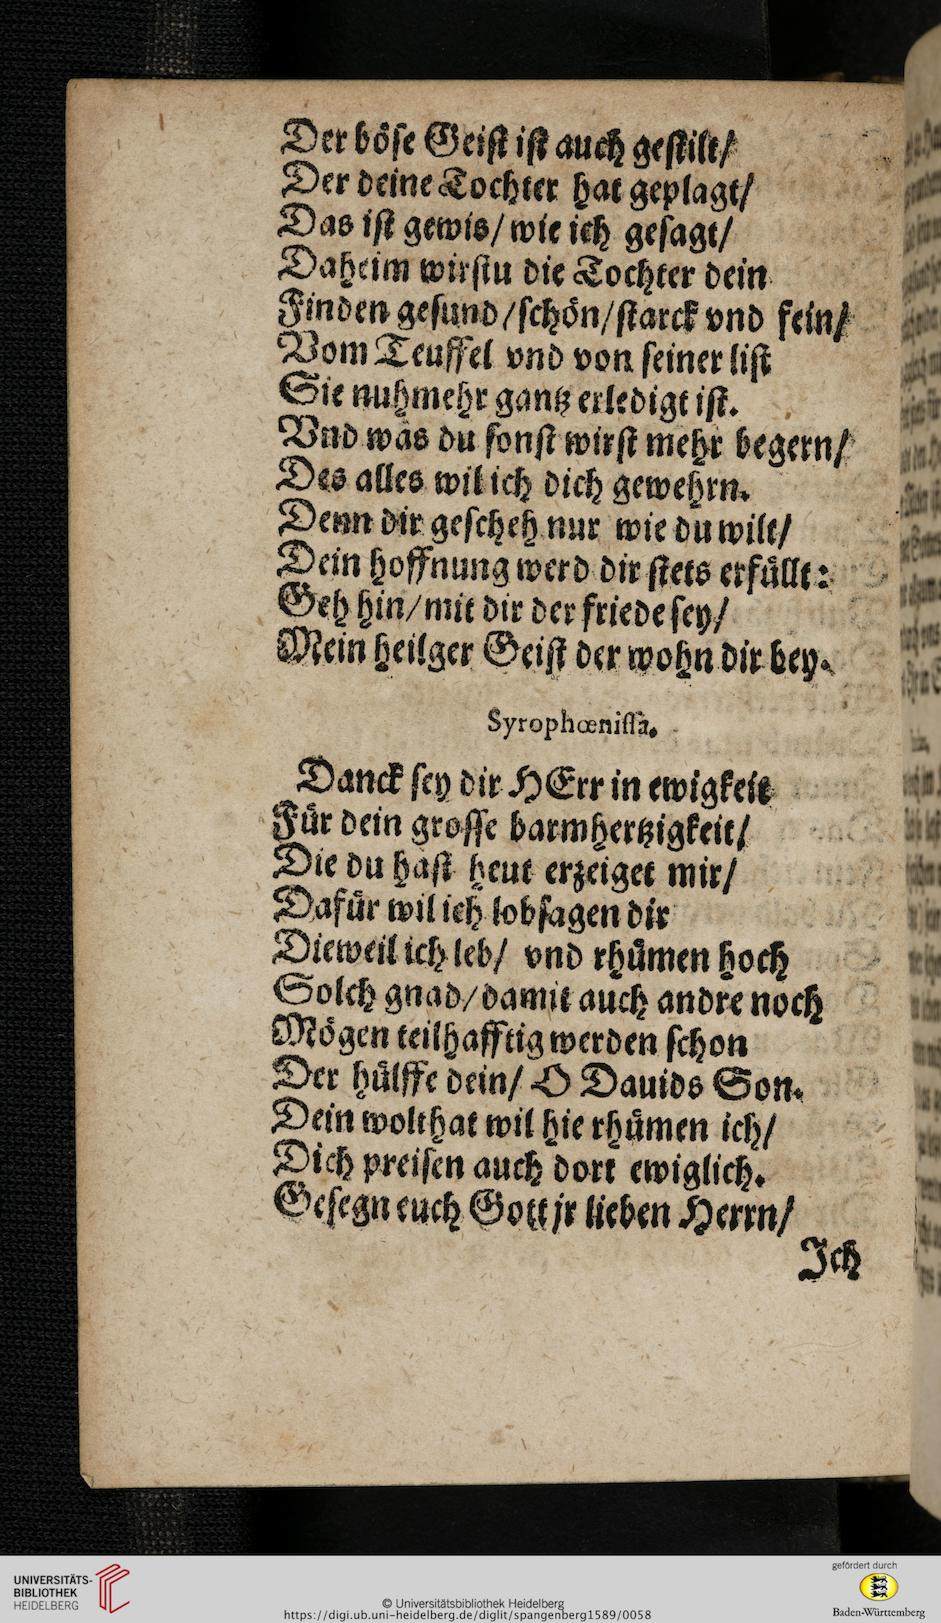 Der böſe Geiſt iſt auch geſtilt/
Der deine Tochter hat geplagt/
Das iſt gewis/ wie ich geſagt/
Daheim wirſtu die Tochter dein
Finden geſund/ſchön/ſtarck vnd fein/
Vom Teuffel vnd von ſeiner liſt
Sie nuhmehr gantz erledigt iſt.
Vnd was du ſonſt wirſt mehr begern/
Des alles wil ich dich gewehrn.
Denn dir geſcheh nur wie du wilt/
Dein hoffnung werd dir ſtets erfüllt:
Geh hin/mit dir der friede ſey/
Mein heilger Geiſt der wohn dir bey.
Syrophœniſſa.
Danck ſey dir HErr in ewigkeit
Für dein groſſe barmhertzigkeit/
Die du haſt heut erzeiget mir/
Dafür wil ich lobſagen dir
Dieweil ich leb/ vnd rhümen hoch
Solch gnad/damit auch andre noch
Mögen teilhafftig werden ſchon
Der hülffe dein/ O Dauids Son.
Dein wolthat wil hie rhümen ich/
Dich preiſen auch dort ewiglich.
Geſegn euch Gott jr lieben Herrn/
Jch
UNIVERSITÄTS-
BIBLIOTHEK
HEIDELBERG
© Universitätsbibliothek Heidelberg
https://digi.ub.uni-heidelberg.de/diglit/spangenberg1589/0058
gefördert durch
Baden-Württemberg